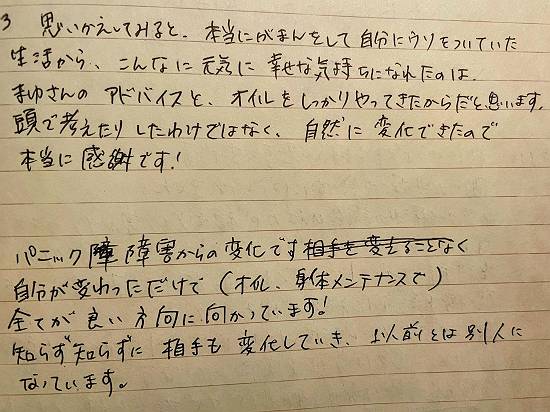 3 思いかえしてみると、本当にがまんをして自分にウソをついていた
生活から、こんなに元気に幸せな気持ちになれたのは、
まゆさんのアドバイスと、オイルをしっかりやってきたからだと思います。
頭で考えたりしたわけではなく、自然に変化できたので
本当に感謝です!
パニック障害からの変化です相手を変えることなく
自分が変わっただけで(オイル、身体メンテナンスで)
全てが良い方向に向かっています!
知らず知らずに相手も変化していき、以前とは別人に
なっています。